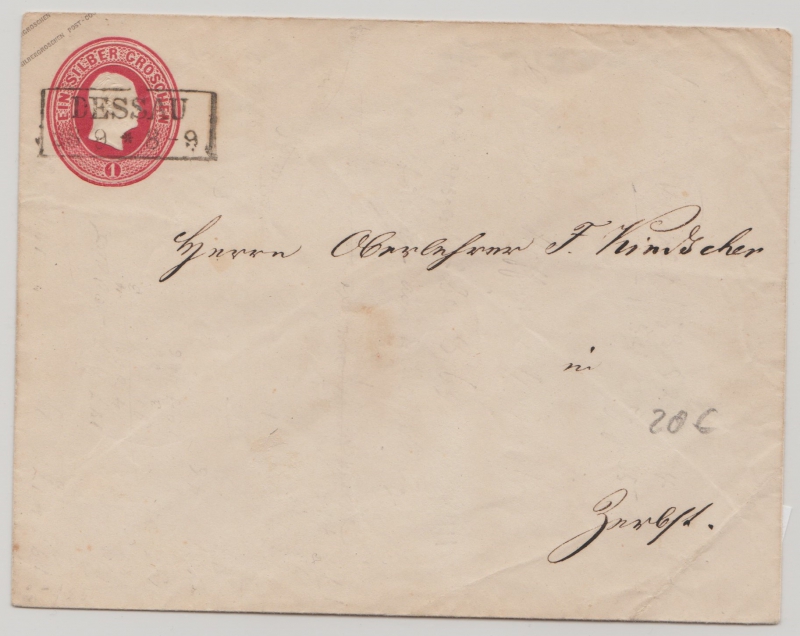 EIN SILBER-GROSCHEN
1
DESSAU
9 * 8-9
Herrn Oberlehrer F. Kindscher
in
20 €
Zerbst.